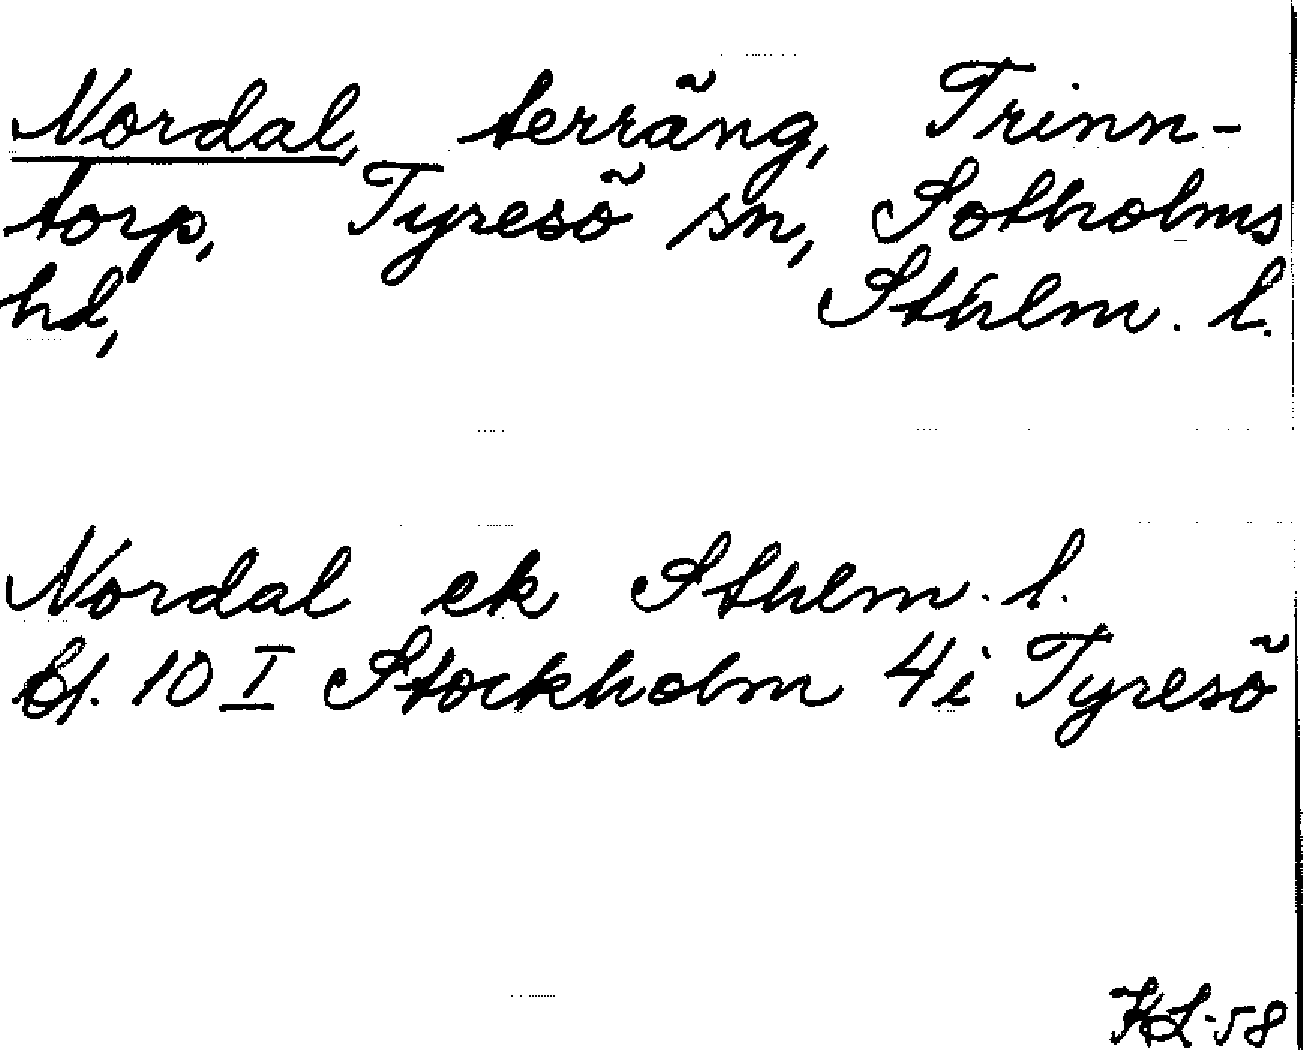 Nordal, terräng, Trinn-
torp, Tyresö sn, Sotholms
hd, Sthlm. l.
Nordal ek Sthlm. l.
Bl. 10 I Stockholm 4i Tyresö
HL-58